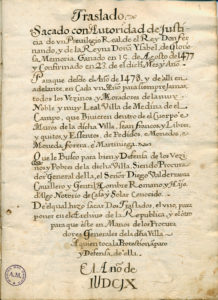 Traslado,
Sacado con Autoridad de Justi
cia de un Privilegio Real de el Rey Don Fer
nando, y de la Reyna Doña Ysabel, de Glorio
sa Memoria. Ganado en 15 de Agosto de 1477
y Confirmado en 22 de el dicho Mes y Año
Para que desde el Año de 1478, y de alli en
adelante, en Cada un Año para siempre Jamas
todos los Vezinos, y Moradores de la muy
Noble y muy Leal Villa de Medina de el
Campo, que Biuieren dentro de el Cuerpo è
Muros de la dicha Villa, sean francos y Libres,
y quitos, y Essentos, de Pedidos, è Monedas, è
Moneda, forera, è Martiniega.
Que le Busco para bien y Defensa de los Vezi
nos y Pobres de la dicha Villa. Siendo Procura
dor General della, el Señor Diego Valderrama
Cauallero y Gentil Hombre Romano y Hijo
dalgo Notorio de Casa y Solar Conocido.
De el qual hizo sacar Dos Traslados, el uno, para
poner en el Archiuo de la Republica, y el otro
para que este en Manos de los Procura
dores Generales de la dicha Villa
A quien toca la Proteccion, Amparo
y Defensa, de ella.
El Año de